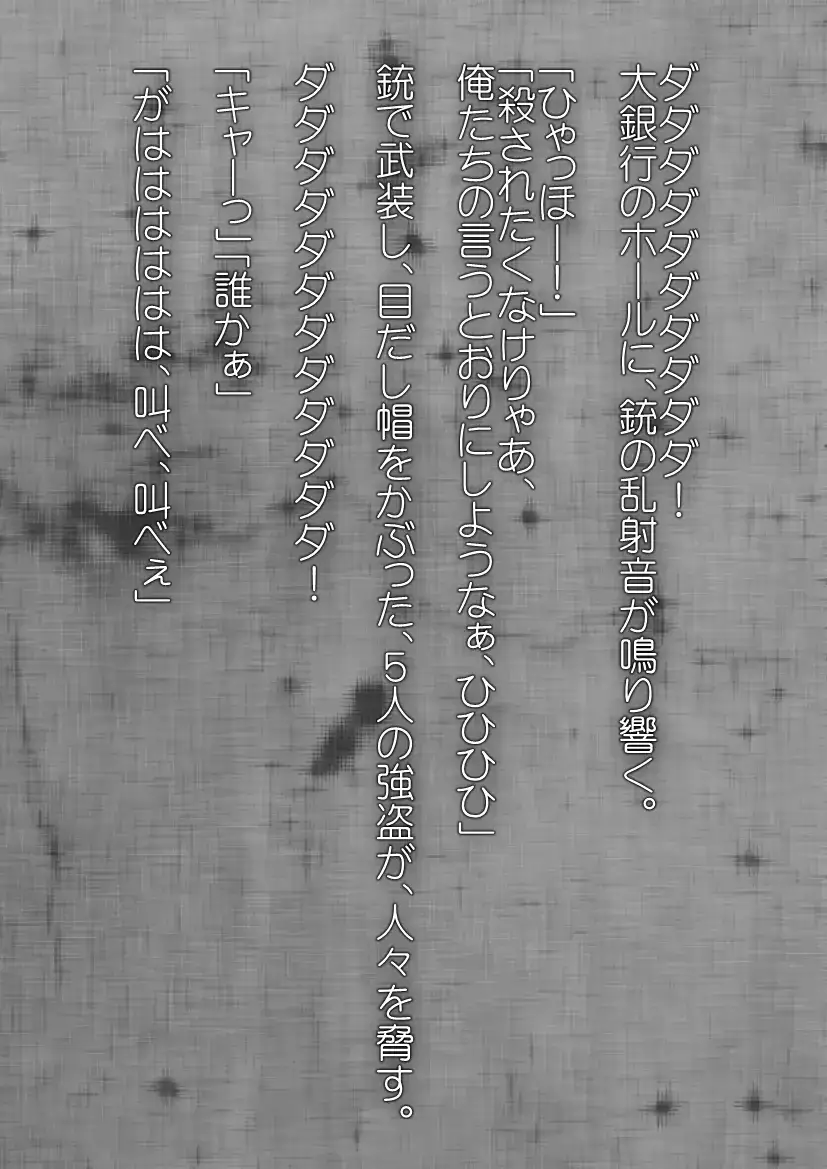 ダダダダダダダダダダ！
大銀行のホールに、銃の乱射音が鳴り響く。
「ひゃっほー！」
「殺されたくなけりゃあ、
俺たちの言うとおりにしようなぁ、ひひひひ」
銃で武装し、目だし帽をかぶった、５人の強盗が、人々を脅す。
ダダダダダダダダダダダダ！
「キャーっ」「誰かぁ」
「がははははは、叫べ、叫べぇ」